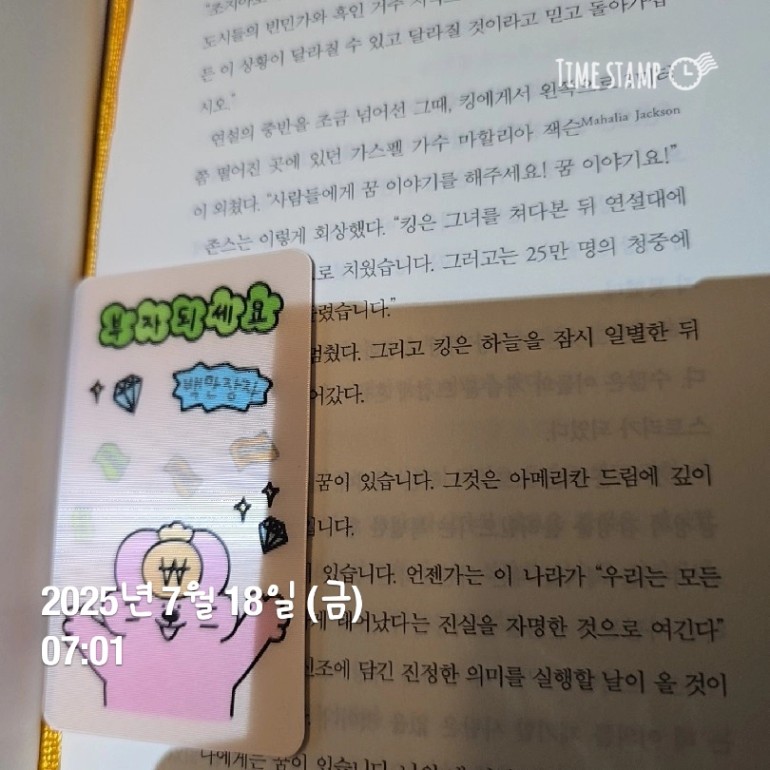 도시들의 빈민가와 흑인 거주
든 이 상황이 달라질 수 있고 달라질 것이라고 믿고 돌아가십
시오."
TIME STAMP
연설의 중반을 조금 넘어선 그때, 킹에게서 왼쪽으로
쯤 떨어진 곳에 있던 가스펠 가수 마할리아 잭슨Mahalia Jackson
이 외쳤다. "사람들에게 꿈 이야기를 해주세요! 꿈 이야기요!"
존스는 이렇게 회상했다. "킹은 그녀를 쳐다본 뒤 연설대에
로 치웠습니다. 그러고는 25만 명의 청중에
렀습니다."
멈췄다. 그리고 킹은 하늘을 잠시 일별한 뒤
어갔다.
꿈이 있습니다. 그것은 아메리칸 드림에 깊이
입니다.
있습니다. 언젠가는 이 나라가 "우리는 모든
태어났다는 진실을 자명한 것으로 여긴다"
신조에 담긴 진정한 의미를 실행할 날이 올 것이
나에게는 꿈이 있습니다.
부자되세요
백만장자
₩
2025년 7월 18일 (금)
07:01